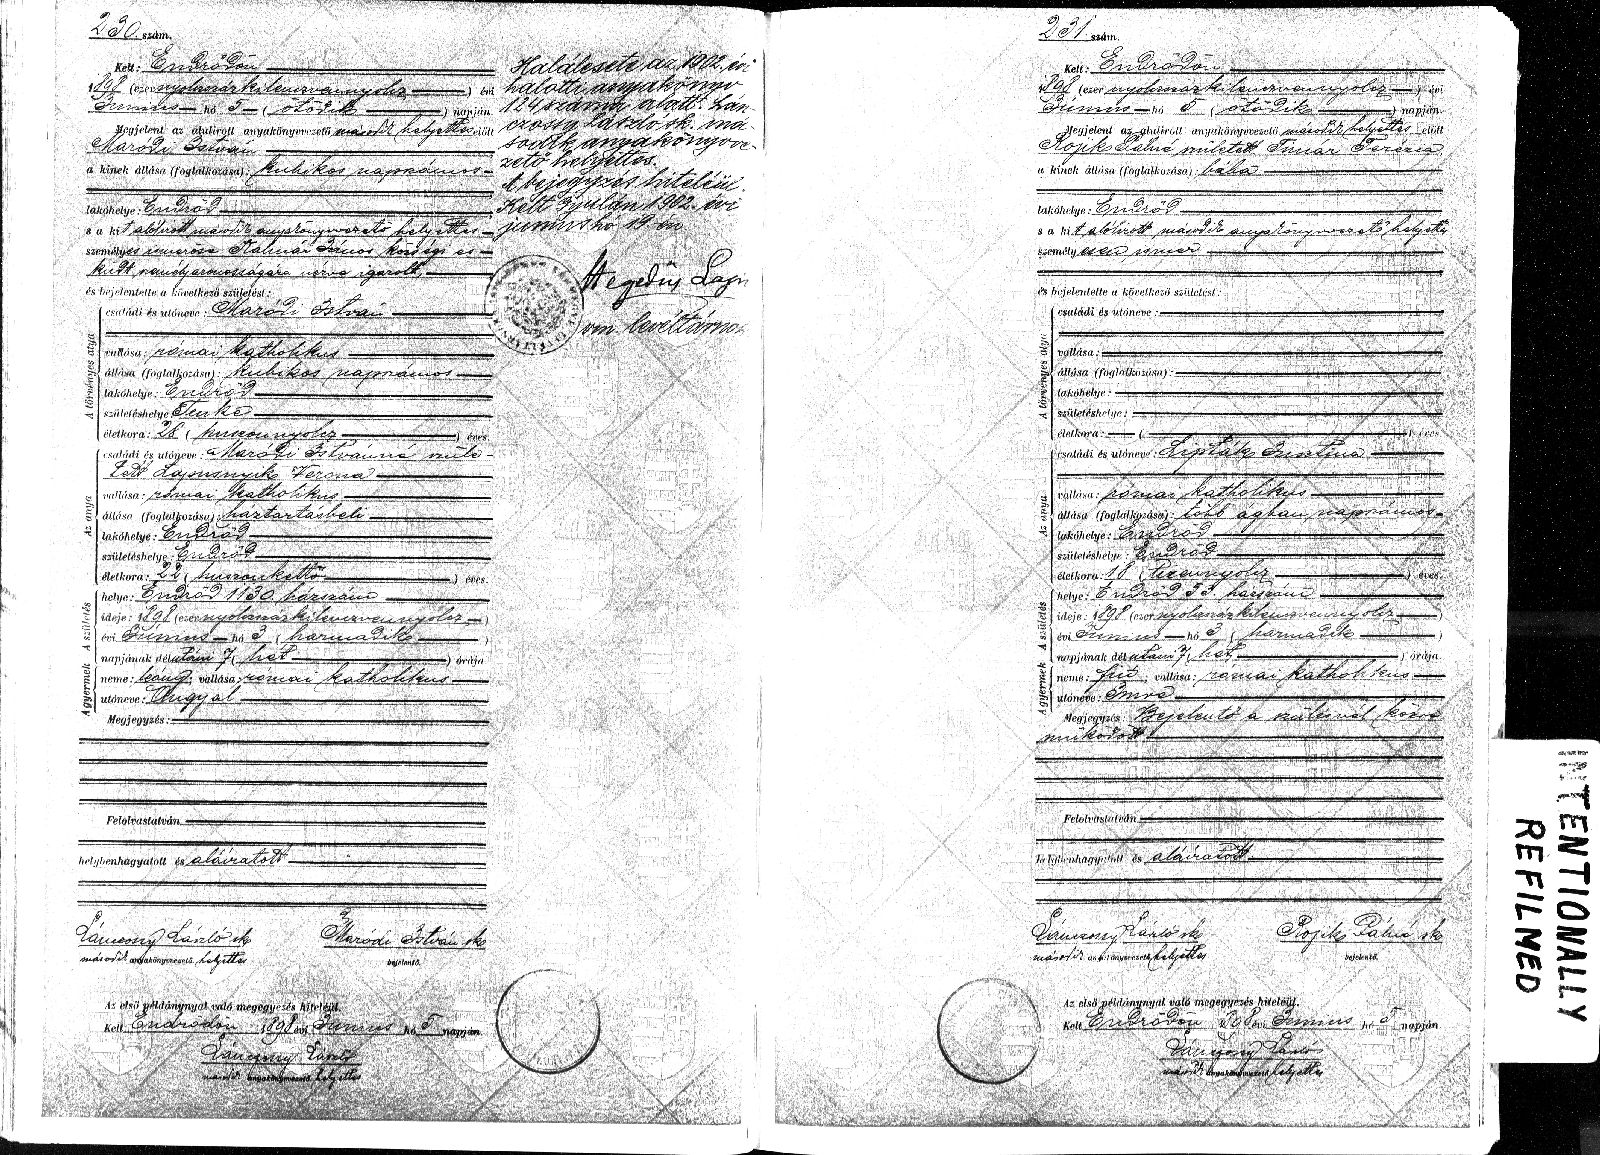 230. szám.
Kelt: Endrődön
1898 (ezernyolcszázkilencvennyolcz) évi
Június hó 5 (ötödik) napján.
Megjelent az alulirott anyakönyvezető második helyettes előtt
Maródi István
a kinek állása (foglalkozása): kubikos napszámos
lakóhelye: Endrőd
s a kit alólirott második anyakönyvvezető helyettes
személyes ismerőse Kálmán János községi es-
küdt személyazonosságára nézve igazolt,
és bejelentette a következő születést:
A törvényes atya
családi és utóneve: Maródi István
vallása: római katholikus
állása (foglalkozása): kubikos napszámos
lakóhelye: Endrőd
születéshelye: Tenke
életkora: 28 (huszonnyolcz) éves.
Az anya
családi és utóneve: Maródi Istvánné szüle-
tett Verona
vallása: római katholikus
állása (foglalkozása): háztartásbeli
lakóhelye: Endrőd
születéshelye: Endrőd
életkora: 22 (huszonkettő) éves.
A születés
helye: Endrőd 1130 házszám
ideje: 1898 (ezernyolcszázkilencvennyolcz)
évi Június hó 3 (harmadik)
napjának délutáni 7 (hét) órája
A gyermek
neme: leány, vallása: római katholikus
utóneve: Angyal
Megjegyzés:
Felolvastatván,
helybenhagyatott és aláiratott
Lánczosy László sk
második anyakönyvvezető helyettes
Maródi István sk
bejelentő.
Az első példánynyal való megegyezés hiteléül.
Kelt Endrődön 1898 évi Június hó 5 napján.
Lánczosy László
második anyakönyvvezető helyettes
Halálesete az 1902. évi
halotti anyakönyv
124 száma alatt: Lán-
czossy László sk. má-
sodik anyakönyvve-
zető helyettes.
A bejegyzés hiteléül.
Kelt Gyulán 1902. évi
junius hó 19. én
Hegedűs Lajos
vm. levéltárnok
231. szám.
Kelt: Endrődön
1898 (ezernyolcszázkilencvennyolcz) évi
Június hó 5 (ötödik) napján.
Megjelent az alulirott anyakönyvvezető második helyettes előtt
Rojik Pálné született Tímár Terézia
a kinek állása (foglalkozása): bába
lakóhelye: Endrőd
s a kit alólirott második anyakönyvvezető helyettes
személyesen ismer
és bejelentette a következő születést:
A törvényes atya
családi és utóneve:
vallása:
állása (foglalkozása):
lakóhelye:
születéshelye:
életkora: ( ) éves
Az anya
családi és utóneve: Lipták Jusztina
vallása: római katholikus
állása (foglalkozása): több ágban napszámos
lakóhelye: Endrőd
születéshelye: Endrőd
életkora: 18 (tizennyolcz) éves.
A születés
helye: Endrőd 33 házszám
ideje: 1898 (ezernyolcszázkilencvennyolcz)
évi Június hó 3 (harmadik)
napjának délutáni 7 (hét) órája
A gyermek
neme: fiú, vallása: római katholikus
utóneve: Imre
Megjegyzés: Bejelentő a szülésnél közre
működött
Felolvastatván,
helybenhagyatott és aláiratott
Lánczosy László sk
második anyakönyvvezető helyettes
Rojik Pálné sk
bejelentő.
Az első példánynyal való megegyezés hiteléül.
Kelt Endrődön 1898 évi Június hó 5 napján.
Lánczosy László
második anyakönyvvezető helyettes
INTENTIONALLY
REFILMED